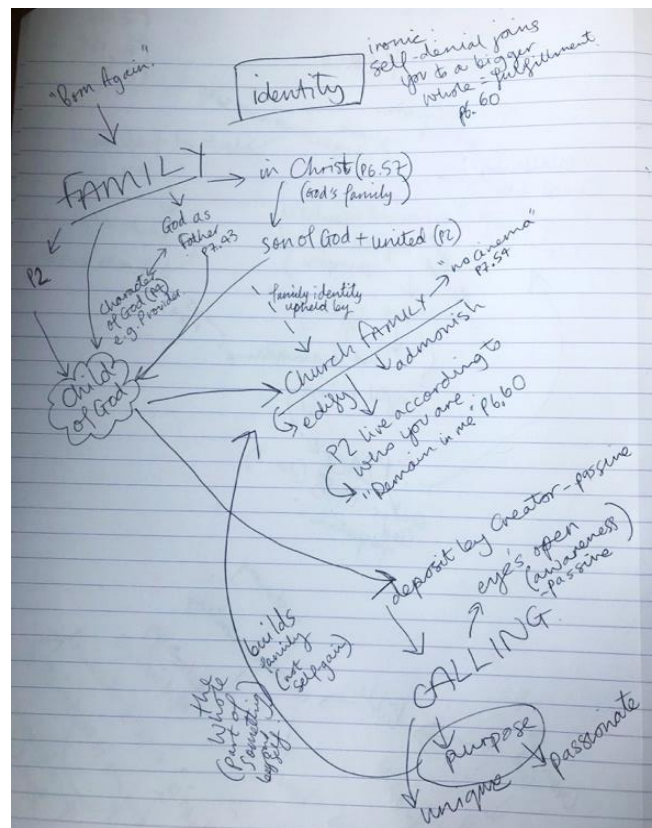 "Born Again"
identity
ironic:
self-denial joins
you to a bigger
whole = fulfillment
P6.60
FAMILY
in Christ (P6.57)
(God's family)
P2
God as
Father
P7.43
son of God + united (P2)
character
of God (P7)
e.g. Provider
family identity
upheld by
"no cinema"
P7.54
Church FAMILY
admonish
edify
Child
of God
P2 live according to
who you are.
"Remain in me" P6.60
deposit by Creator - passive
eyes open
(awareness)
- passive
CALLING
builds
family
(not
self gain)
the
whole
(part of
something
beyond
self)
purpose
passionate
unique